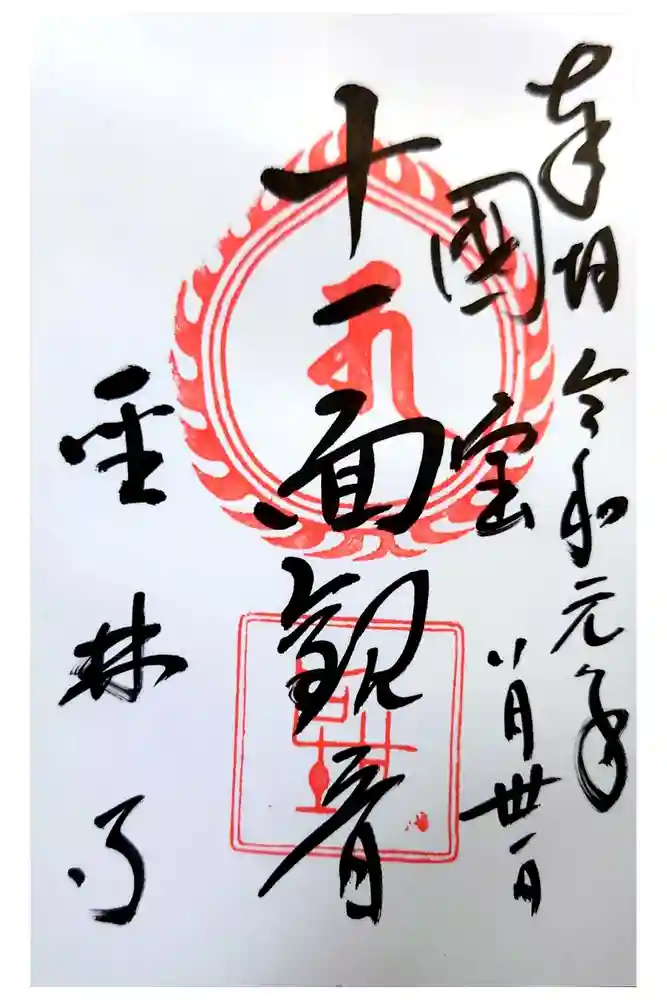 奉拝 令和元年
八月卅一日
國宝
十一面観音
聖林寺